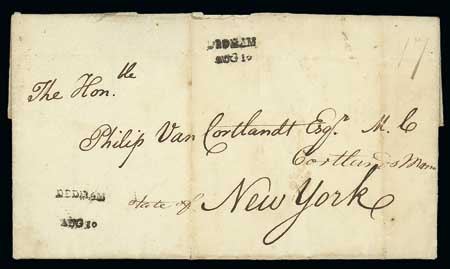 DEDHAM
AUG 10
17
The Hon.ble
Philip Van Cortlandt Esqr. M. C
Cortlands Mann
DEDHAM
AUG 10
State of New York